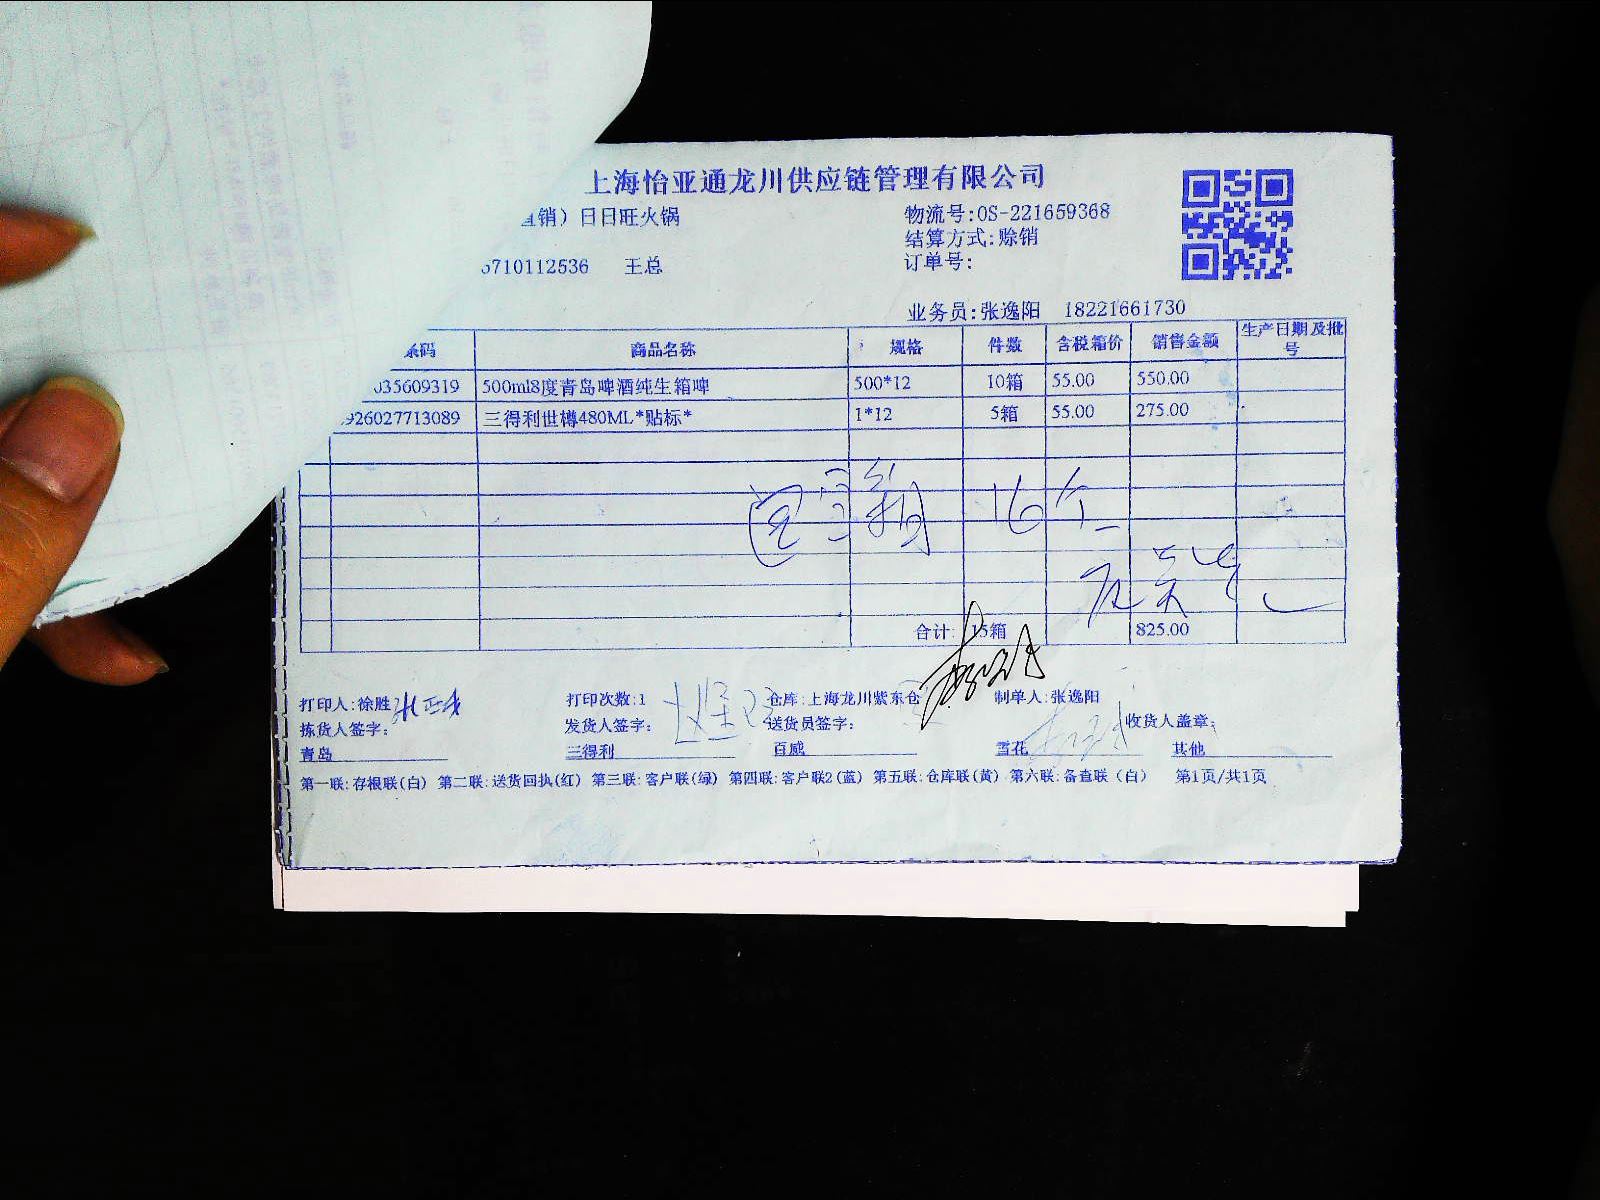 上海怡亚通龙川供应链管理有限公司
直销）日日旺火锅 物流号:OS-221659368
结算方式:赊销
5710112536 王总 订单号:
业务员:张逸阳 18221661730
条码 商品名称 规格 件数 含税箱价 销售金额 生产日期及批号
035609319 500ml8度青岛啤酒纯生箱啤 500*12 10箱 55.00 550.00
926027713089 三得利世樽480ML*贴标* 1*12 5箱 55.00 275.00
16个
合计: 15箱 825.00
打印人:徐胜 打印次数:1 仓库:上海龙川紫东仓 制单人:张逸阳
拣货人签字: 发货人签字: 送货员签字: 收货人盖章:
青岛 三得利 百威 雪花 其他
第一联:存根联(白) 第二联:送货回执(红) 第三联:客户联(绿) 第四联:客户联2(蓝) 第五联:仓库联(黄) 第六联:备查联（白） 第1页/共1页